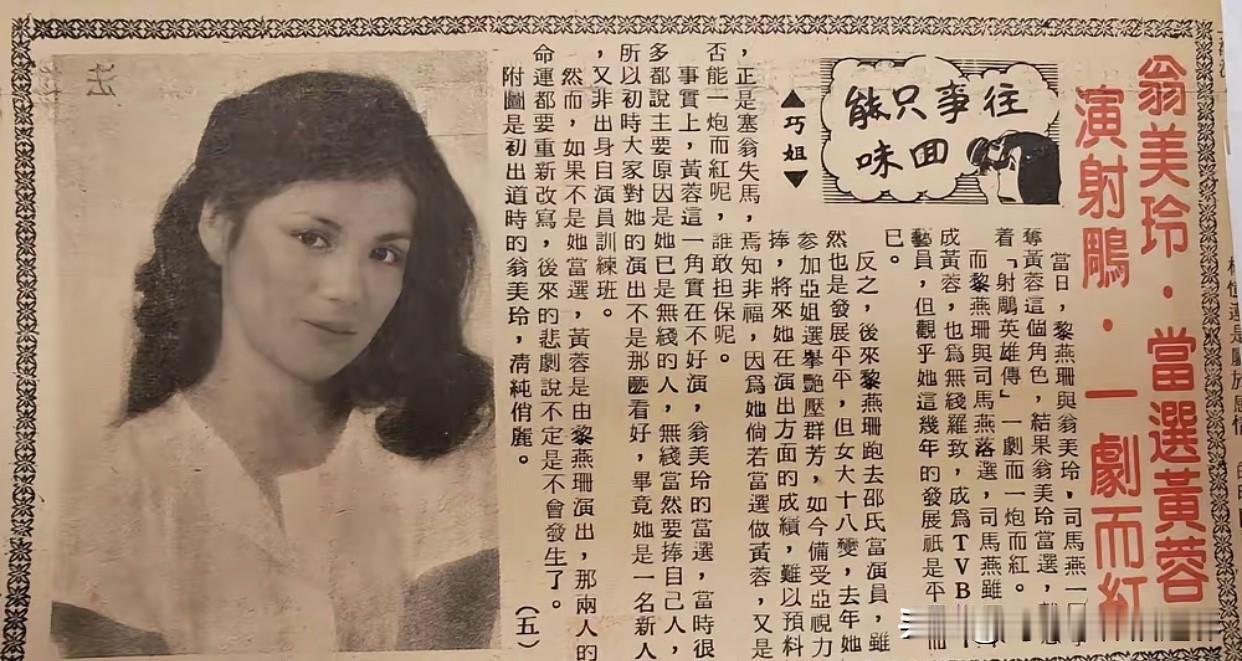 翁美玲·當選黃蓉
演射鵰·一劇而紅
往事只能
回味
▲巧姐▼
當日,黎燕珊與翁美玲,司馬燕一
奪黃蓉這個角色,結果翁美玲當選,
着「射鵰英雄傳」一劇而一炮而紅。
而黎燕珊與司馬燕落選,司馬燕雖
成黃蓉,也爲無綫羅致,成爲TVB
藝員,但觀乎她這幾年的發展祇是平而
已。
反之,後來黎燕珊跑去邵氏當演員,雖
然也是發展平平,但女大十八變,去年她
參加亞姐選舉艷壓群芳,如今備受亞視力
捧,將來她在演出方面的成績,難以預料
,正是塞翁失馬,焉知非福,因爲她倘若當選做黃蓉,又是
否能一炮而紅呢,誰敢担保呢。
事實上,黃蓉這一角實在不好演,翁美玲的當選,當時很
多都說主要原因是她已是無綫的人,無綫當然要捧自己人,
所以初時大家對她的演出不是那麽看好,畢竟她是一名新人
,又非出身自演員訓練班。
然而,如果不是她當選,黃蓉是由黎燕珊演出,那兩人的
命運都要重新改寫,後來的悲劇說不定是不會發生了。
附圖是初出道時的翁美玲,清純俏麗。(五)